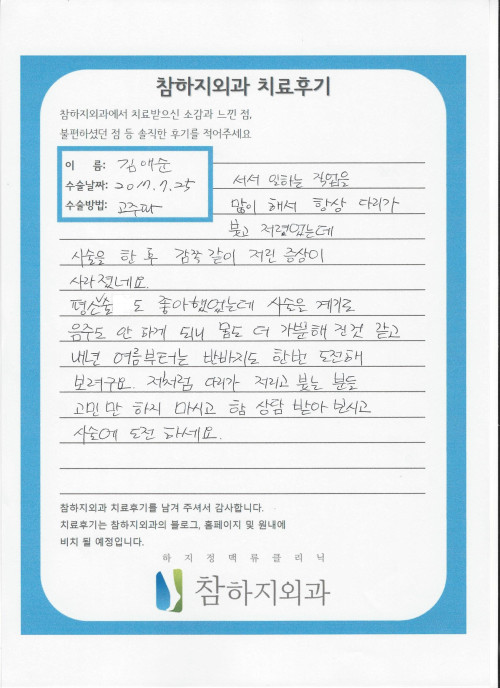 참하지외과 치료후기
참하지외과에서 치료받으신 소감과 느낀 점,
불편하셨던 점 등 솔직한 후기를 적어주세요
이 름: 김애순
수술날짜: 2017.7.25
수술방법: 고주파
서서 일하는 직업을
많이 해서 항상 다리가
붓고 저렸었는데
시술을 한 후 감쪽같이 저린 증상이
사라졌네요.
평상술도 좋아했었는데 시술은 계기로
음주도 안 하게 되니 몸도 더 가뿐해진것 같고
내년 여름부터는 반바지도 한번 도전해
보려구요. 저처럼 다리가 저리고 붓는 분들
고민만 하지 마시고 참 상담 받아 보시고
시술에 도전 하세요.
참하지외과 치료후기를 남겨 주셔서 감사합니다.
치료후기는 참하지외과의 블로그, 홈페이지 및 원내에
비치 될 예정입니다.
하지정맥류클리닉
참하지외과